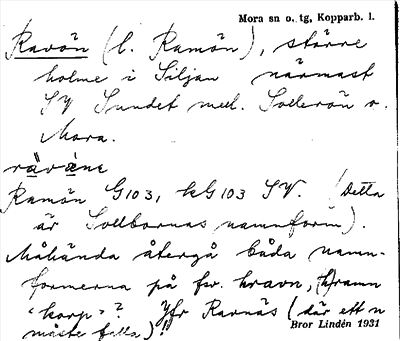 Mora sn o. tg, Kopparb. l.
Ravön (l. Ramön), större
holme i Siljan närmast
SV Sundet mell. Sollerön o.
Mora.
rävä̀ne
Ramön G103, kG103 SV. (Detta
är Sollbornas namnform).
Måhända återgå båda namn-
formerna på fsv. hravn, (h)ramn
"korp"? Jfr Ravnäs (där ett n
måste falla)!
Bror Lindén 1931